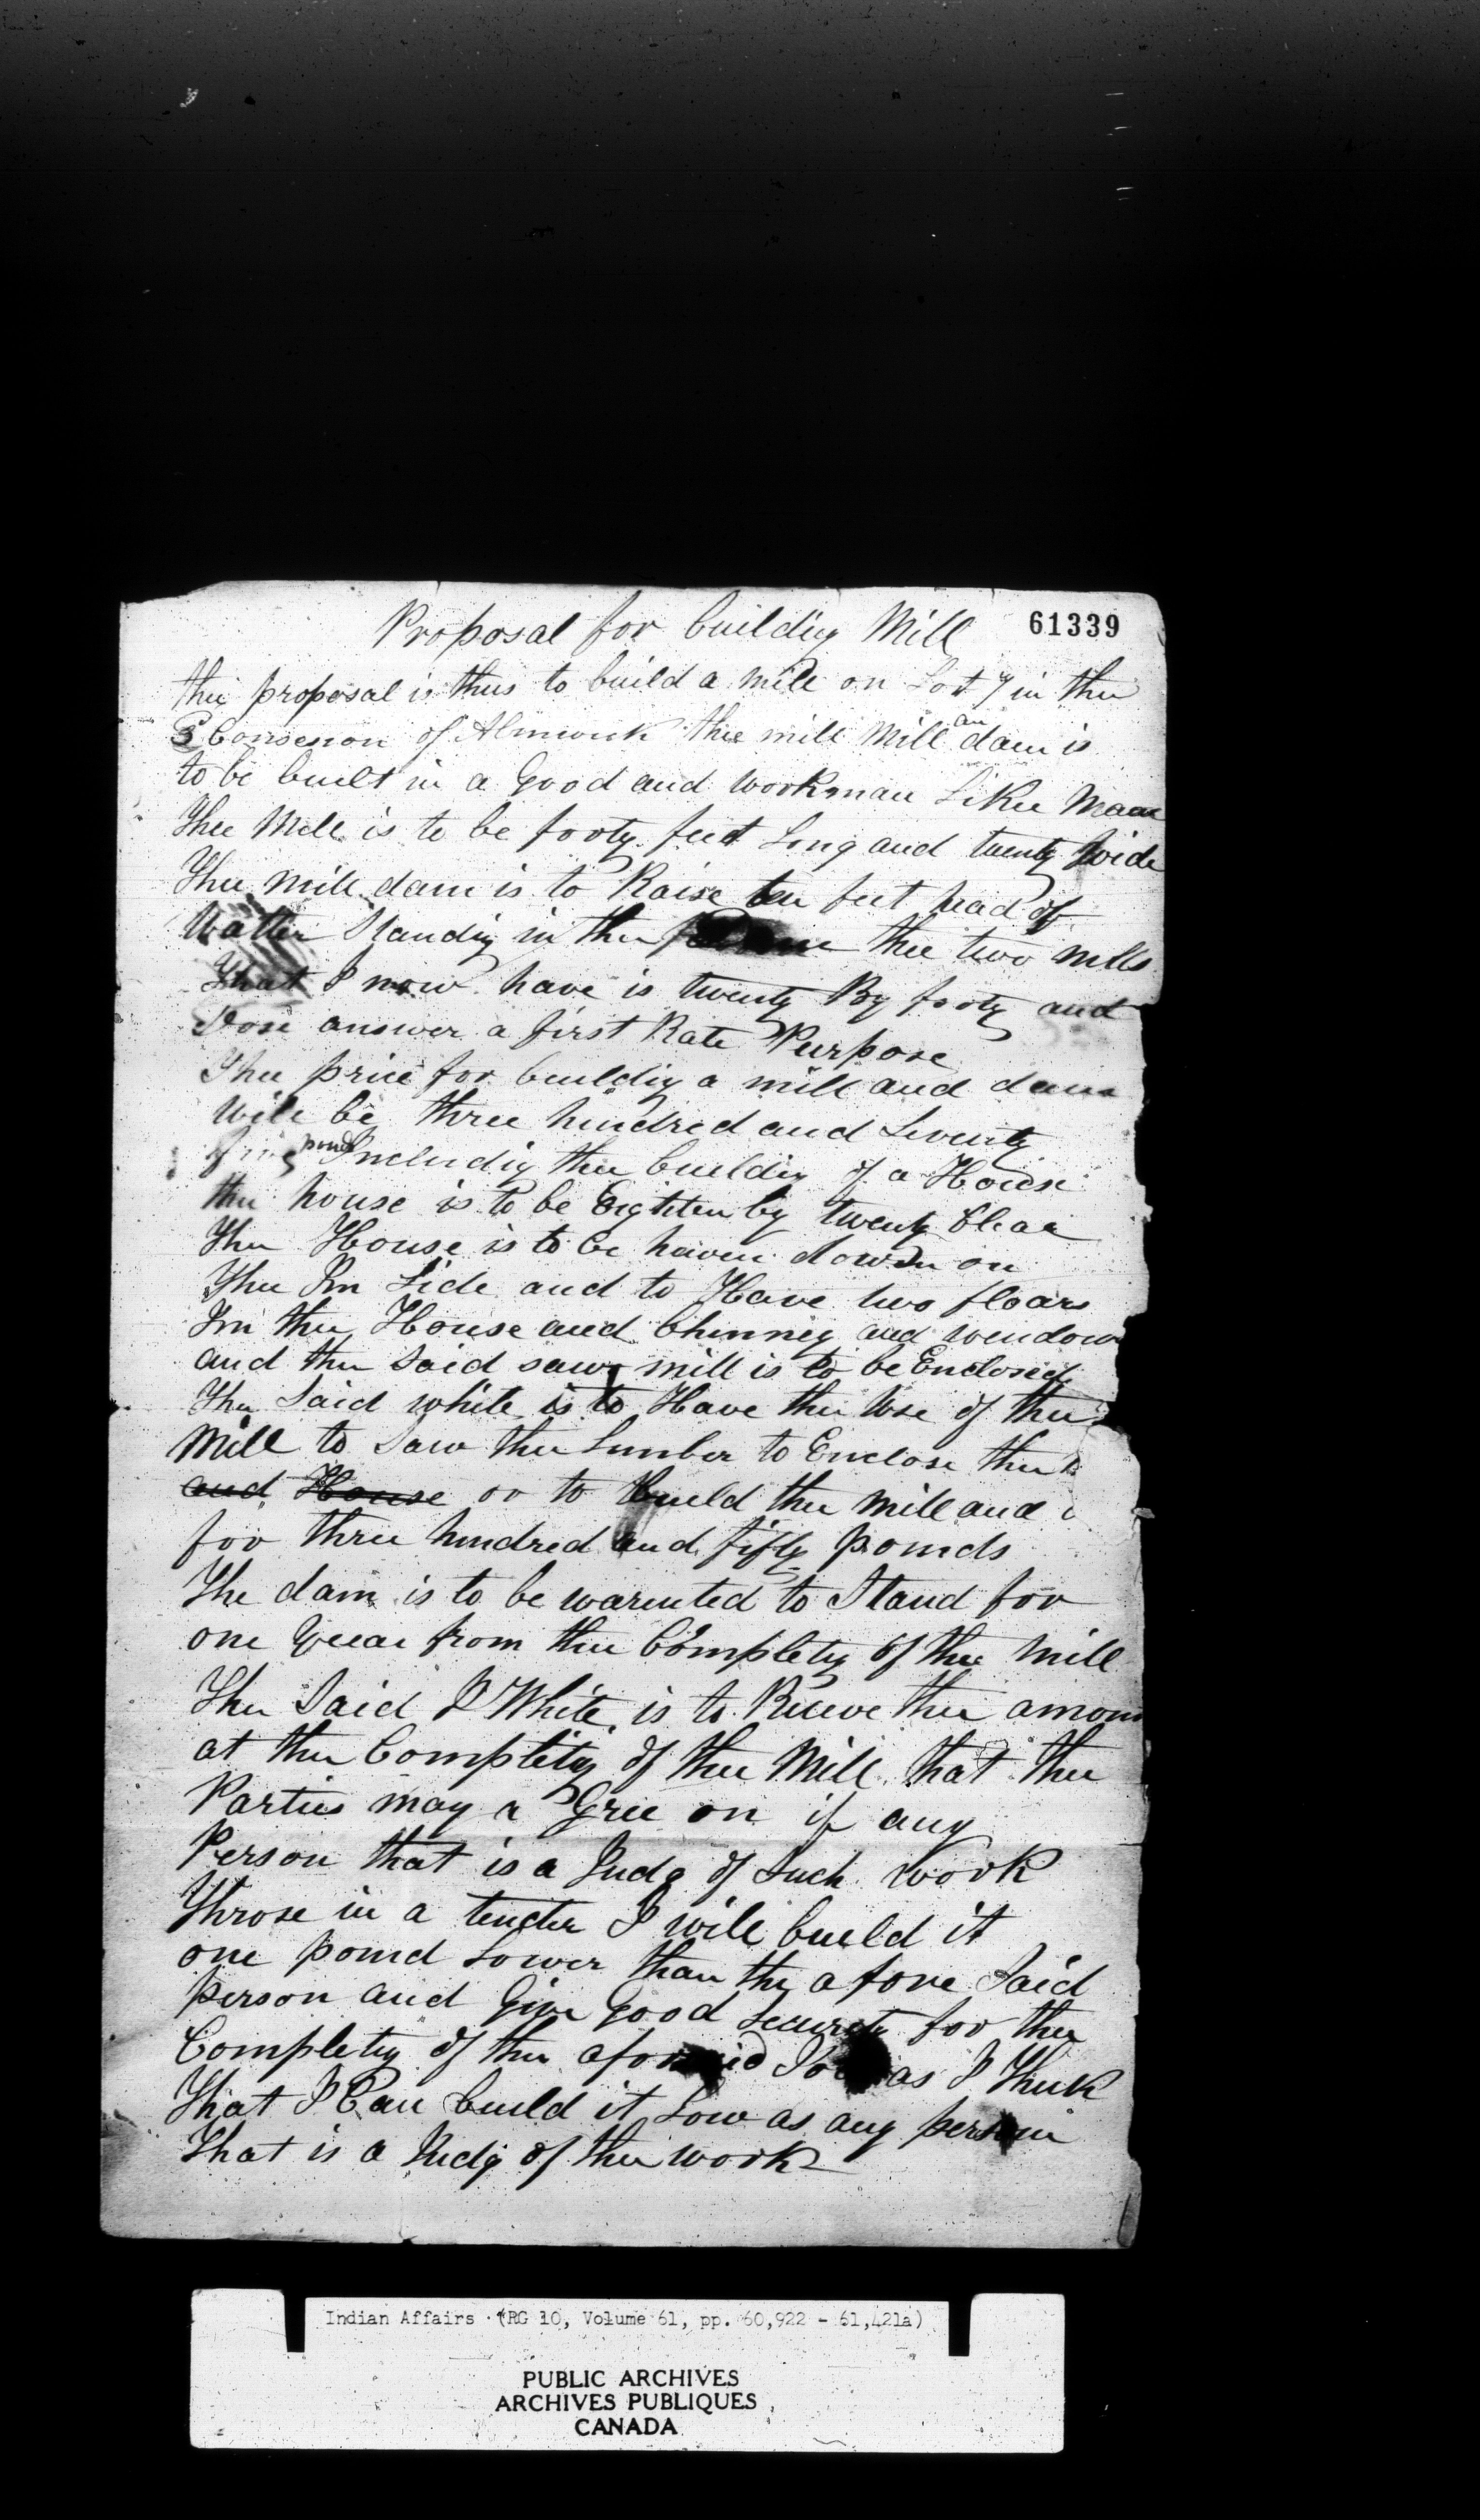 Proposal for building Mill 61339
thee proposal is thus to build a mill on Lot 7 in thee
3 Consesion of Alnwick thee mill Mill an dam is
to be built in a Good and workman Likee Mann
Thee Mill is to be footy feet Long and twenty wide
Thee mill dam is to Raise ten feet head of
Watter Standig in thee thee two mills
that I now have is twenty By footy and
Dose answer a first Rate Purpose
Thee price for buildig a mill and dam
Will be three hundred and Seventy
five pound Includig thee buildig of a House
thee house is to be Eighteen by twenty Clear
Thee House is to be hewen down on
Thee In Side and to Have two floars
In thee House and Chimney and window
and thee Said saw mill is to be Enclosed
Thee Said white is to Have thee Use of thee
Mill to Saw thee Lumber to Enclose thee
and House or to Build thee mill and
for three hundred and fifty pounds
The dam is to be warented to Stand for
one Yeear from thee Completig of thee Mill
Thee Said J White is to Receve thee amoun
at thee Completig of thee Mill that thee
Parties may a Gree on if any
Person that is a Judg of Such work
throse in a tender I will build it
one pound Lower than the a fore Said
person and Give Good Security for thee
Completig of thee as I Think
That I Can build it Low as any person
that is a Judg of thee work
Indian Affairs (RG 10, Volume 61, pp. 60,922 - 61,421a)
PUBLIC ARCHIVES
ARCHIVES PUBLIQUES
CANADA